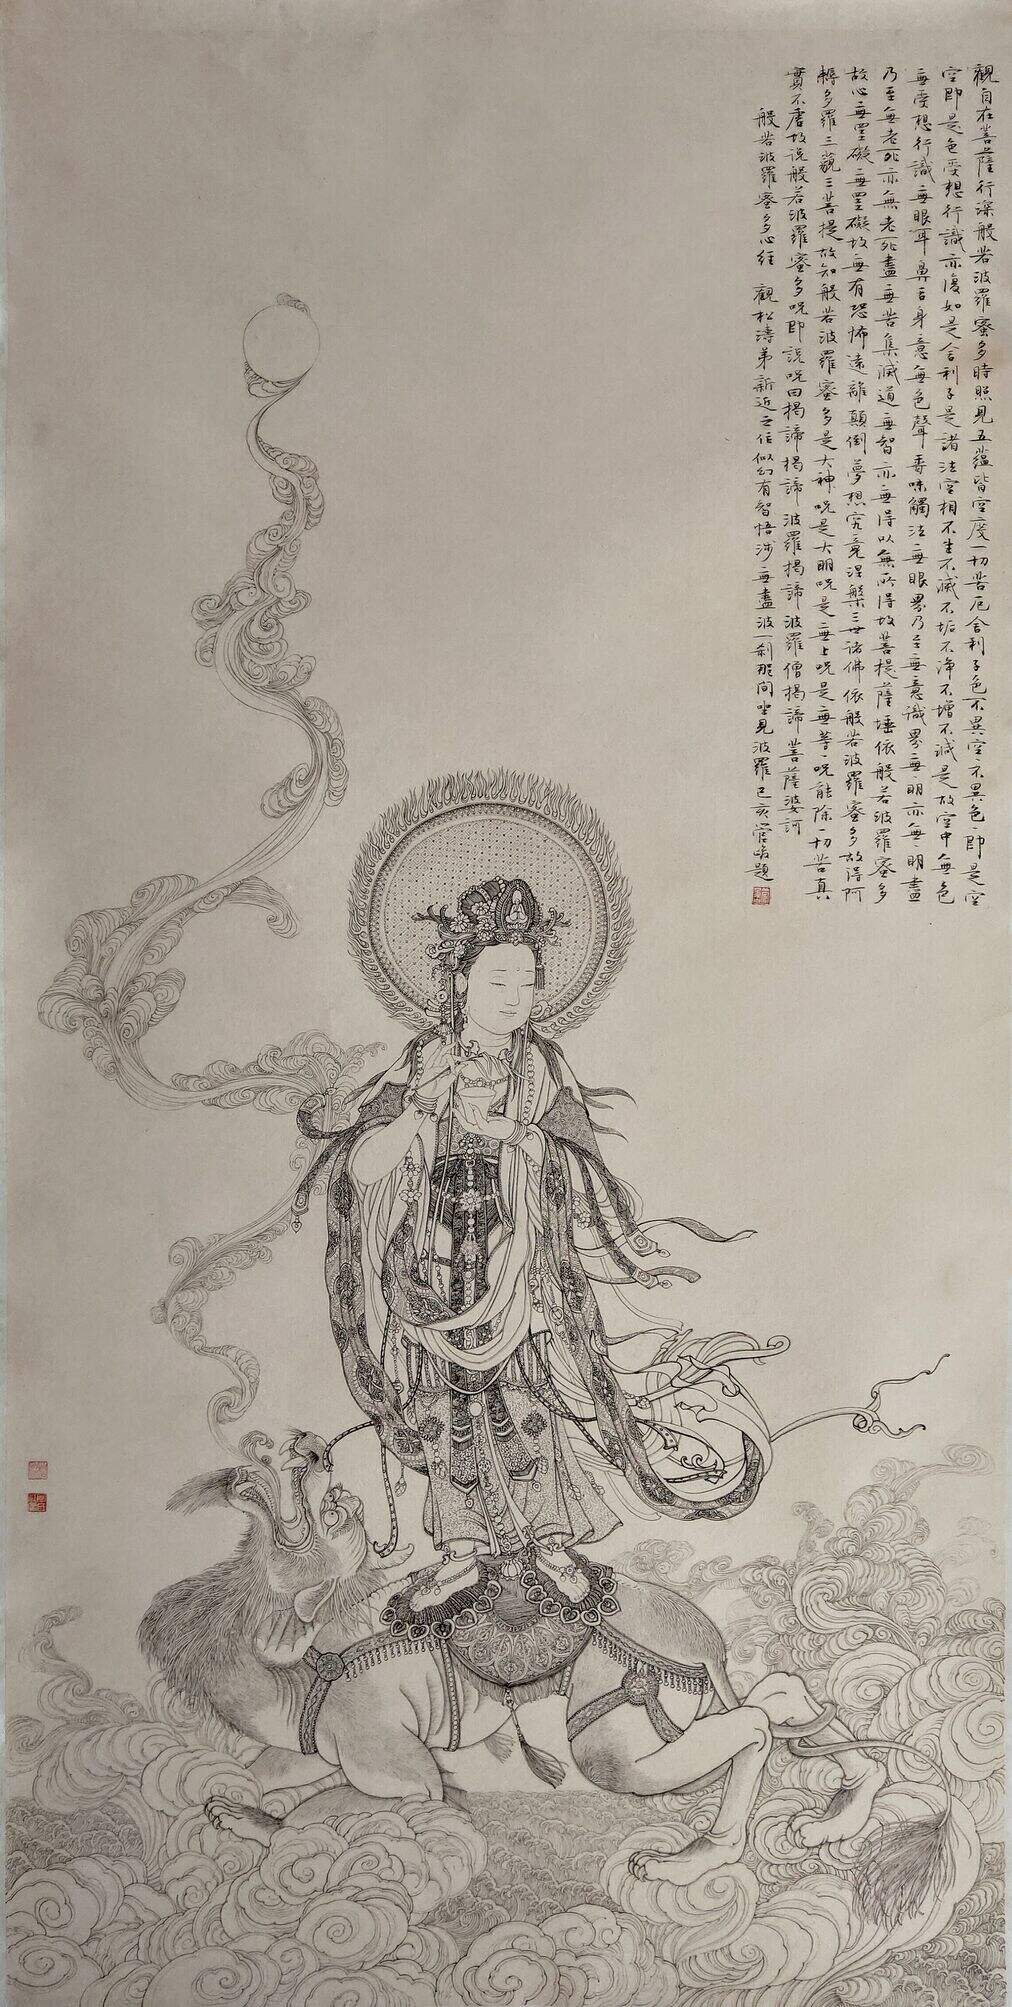 觀自在菩薩行深般若波羅蜜多時照見五蘊皆空度一切苦厄舍利子色不異空不異色即是空
空即是色受想行識亦復如是舍利子是諸法空相不生不滅不垢不淨不增不減是故空中無色
無受想行識無眼耳鼻舌身意無色聲香味觸法無眼界乃至無意識界無明亦無明盡
乃至無老死亦無老死盡無苦集滅道無智亦無得以無所得故菩提薩埵依般若波羅蜜多
故心無罣礙無罣礙故無有恐怖遠離顛倒夢想究竟涅槃三世諸佛依般若波羅蜜多故得阿
耨多羅三藐三菩提故知般若波羅蜜多是大神咒是大明咒是無上咒是無等咒能除一切苦真
實不虛故說般若波羅蜜多咒即說咒曰揭諦揭諦波羅揭諦波羅僧揭諦菩薩婆訶
般若波羅蜜多心經 觀松濤弟新近之作似幻有智悟涉無盡波一剎那間坐見波羅己亥管峻題